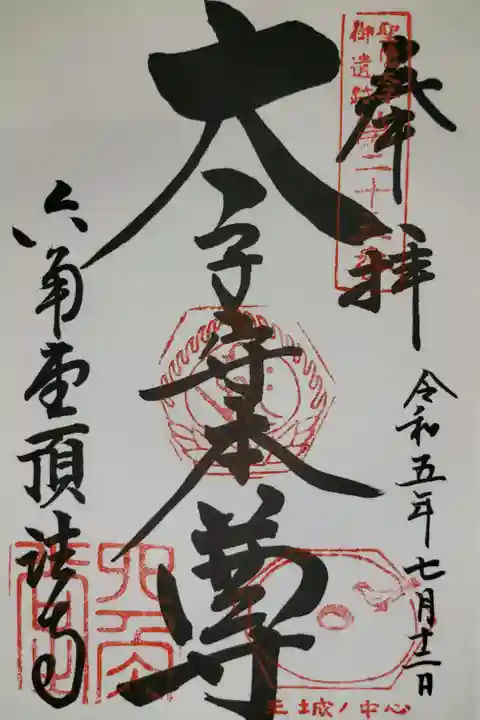 奉拝
聖徳太子
御遺跡第二十
令和五年七月十二日
太子守本尊
六角堂頂法寺
王城ノ中心